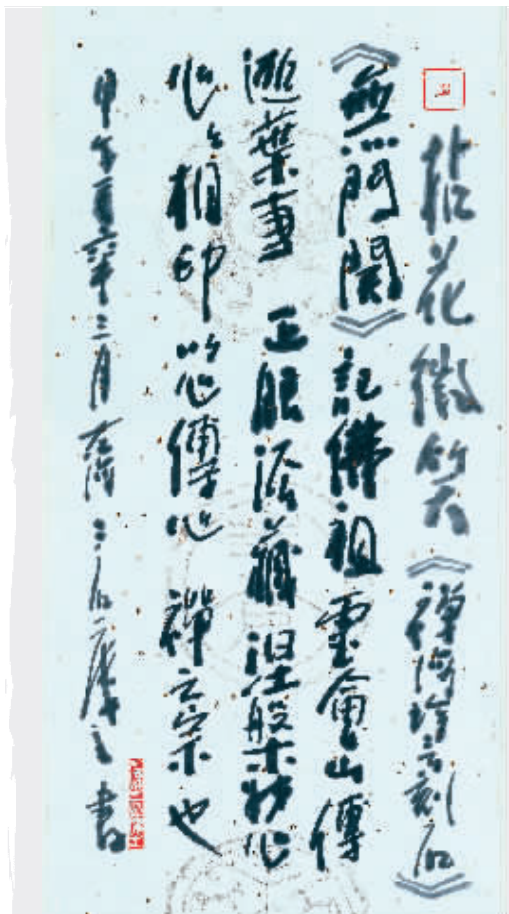 拈花微笑《禪海珍言刻石》
《無門關》記佛祖靈會山傳
迦葉事 正眼法藏 涅槃妙心
心々相印 以心傳心 禪之宗也
甲午 三月 左海 書